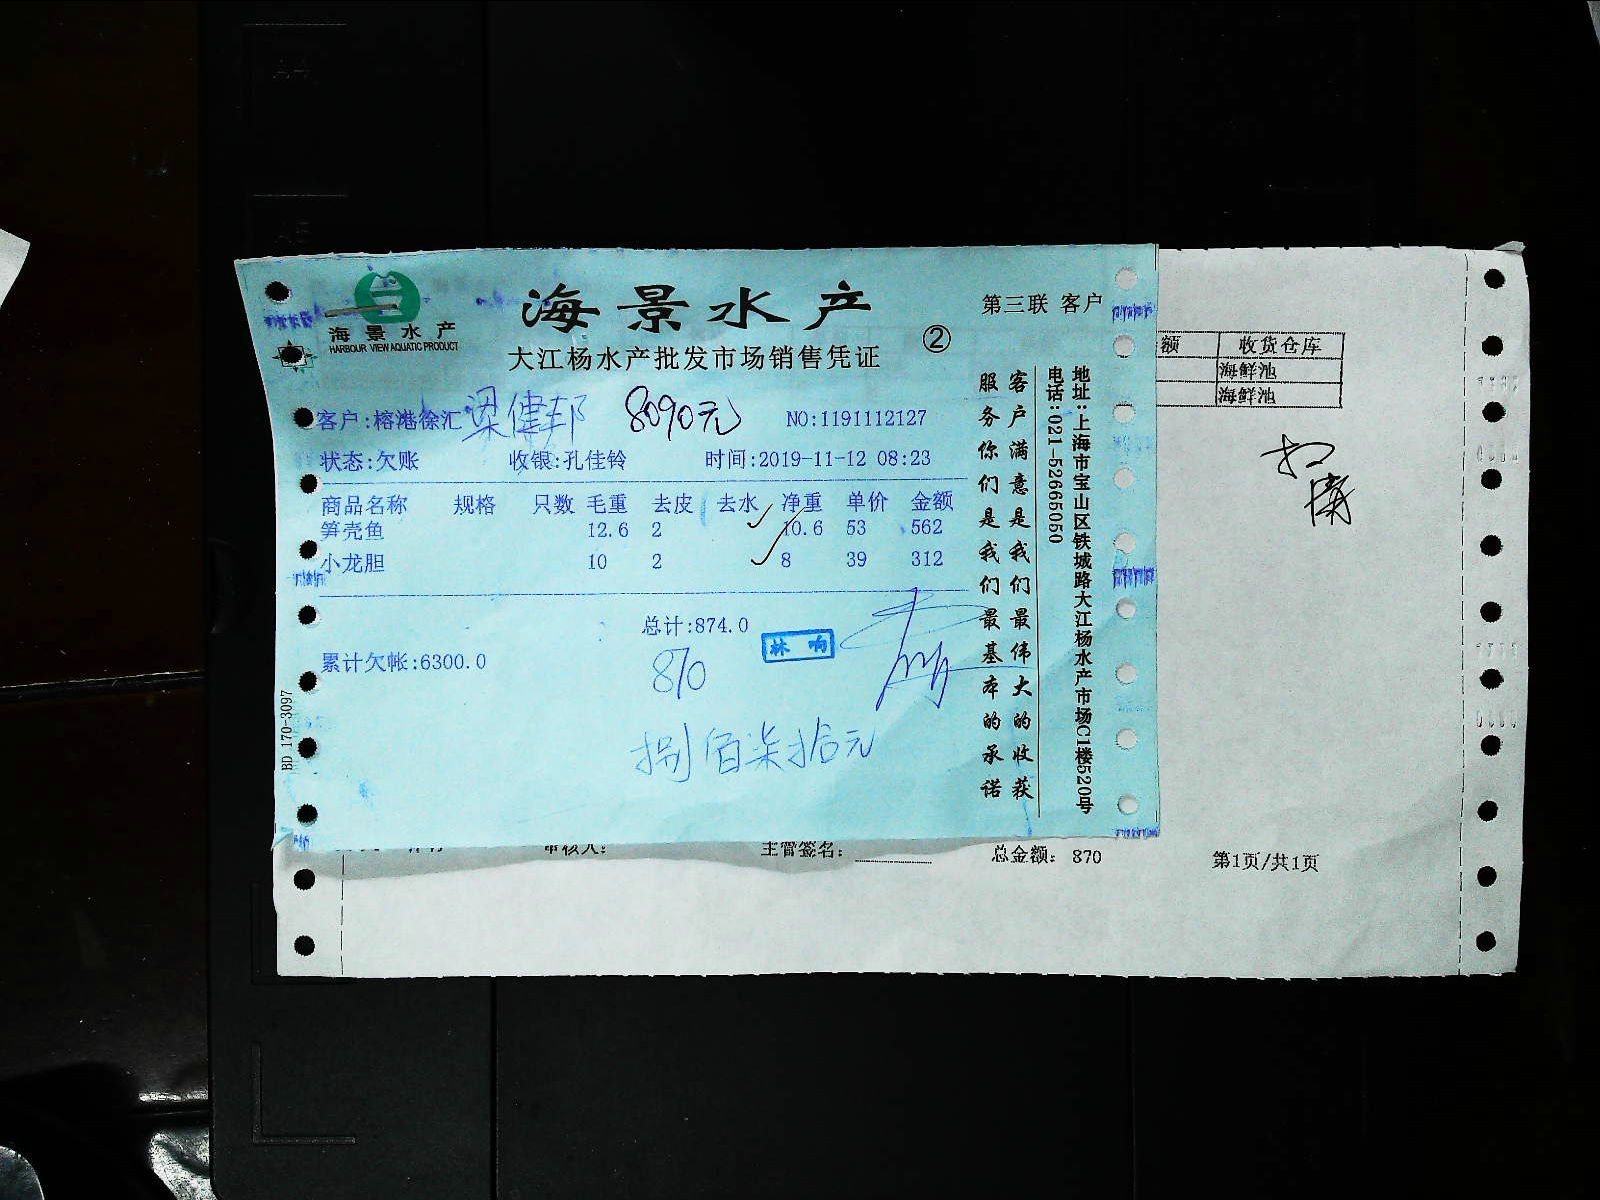 海景水产
HARBOUR VIEW AQUATIC PRODUCT
海景水产
第三联 客户
大江杨水产批发市场销售凭证 ②
客户:榕港徐汇 梁健邦 8090元 NO:1191112127
状态:欠账 收银:孔佳铃 时间:2019-11-12 08:23
商品名称 规格 只数 毛重 去皮 去水 净重 单价 金额
笋壳鱼 12.6 2 10.6 53 562
小龙胆 10 2 8 39 312
总计:874.0
林响
累计欠帐:6300.0
870
捌佰柒拾元
BD 170-3097
客户满意是我们最伟大的收获
服务你们是我们最基本的承诺
地址:上海市宝山区铁城路大江杨水产市场C1楼520号
电话:021-52665050
额 收货仓库
海鲜池
海鲜池
审核人: 主管签名: 总金额: 870 第1页/共1页